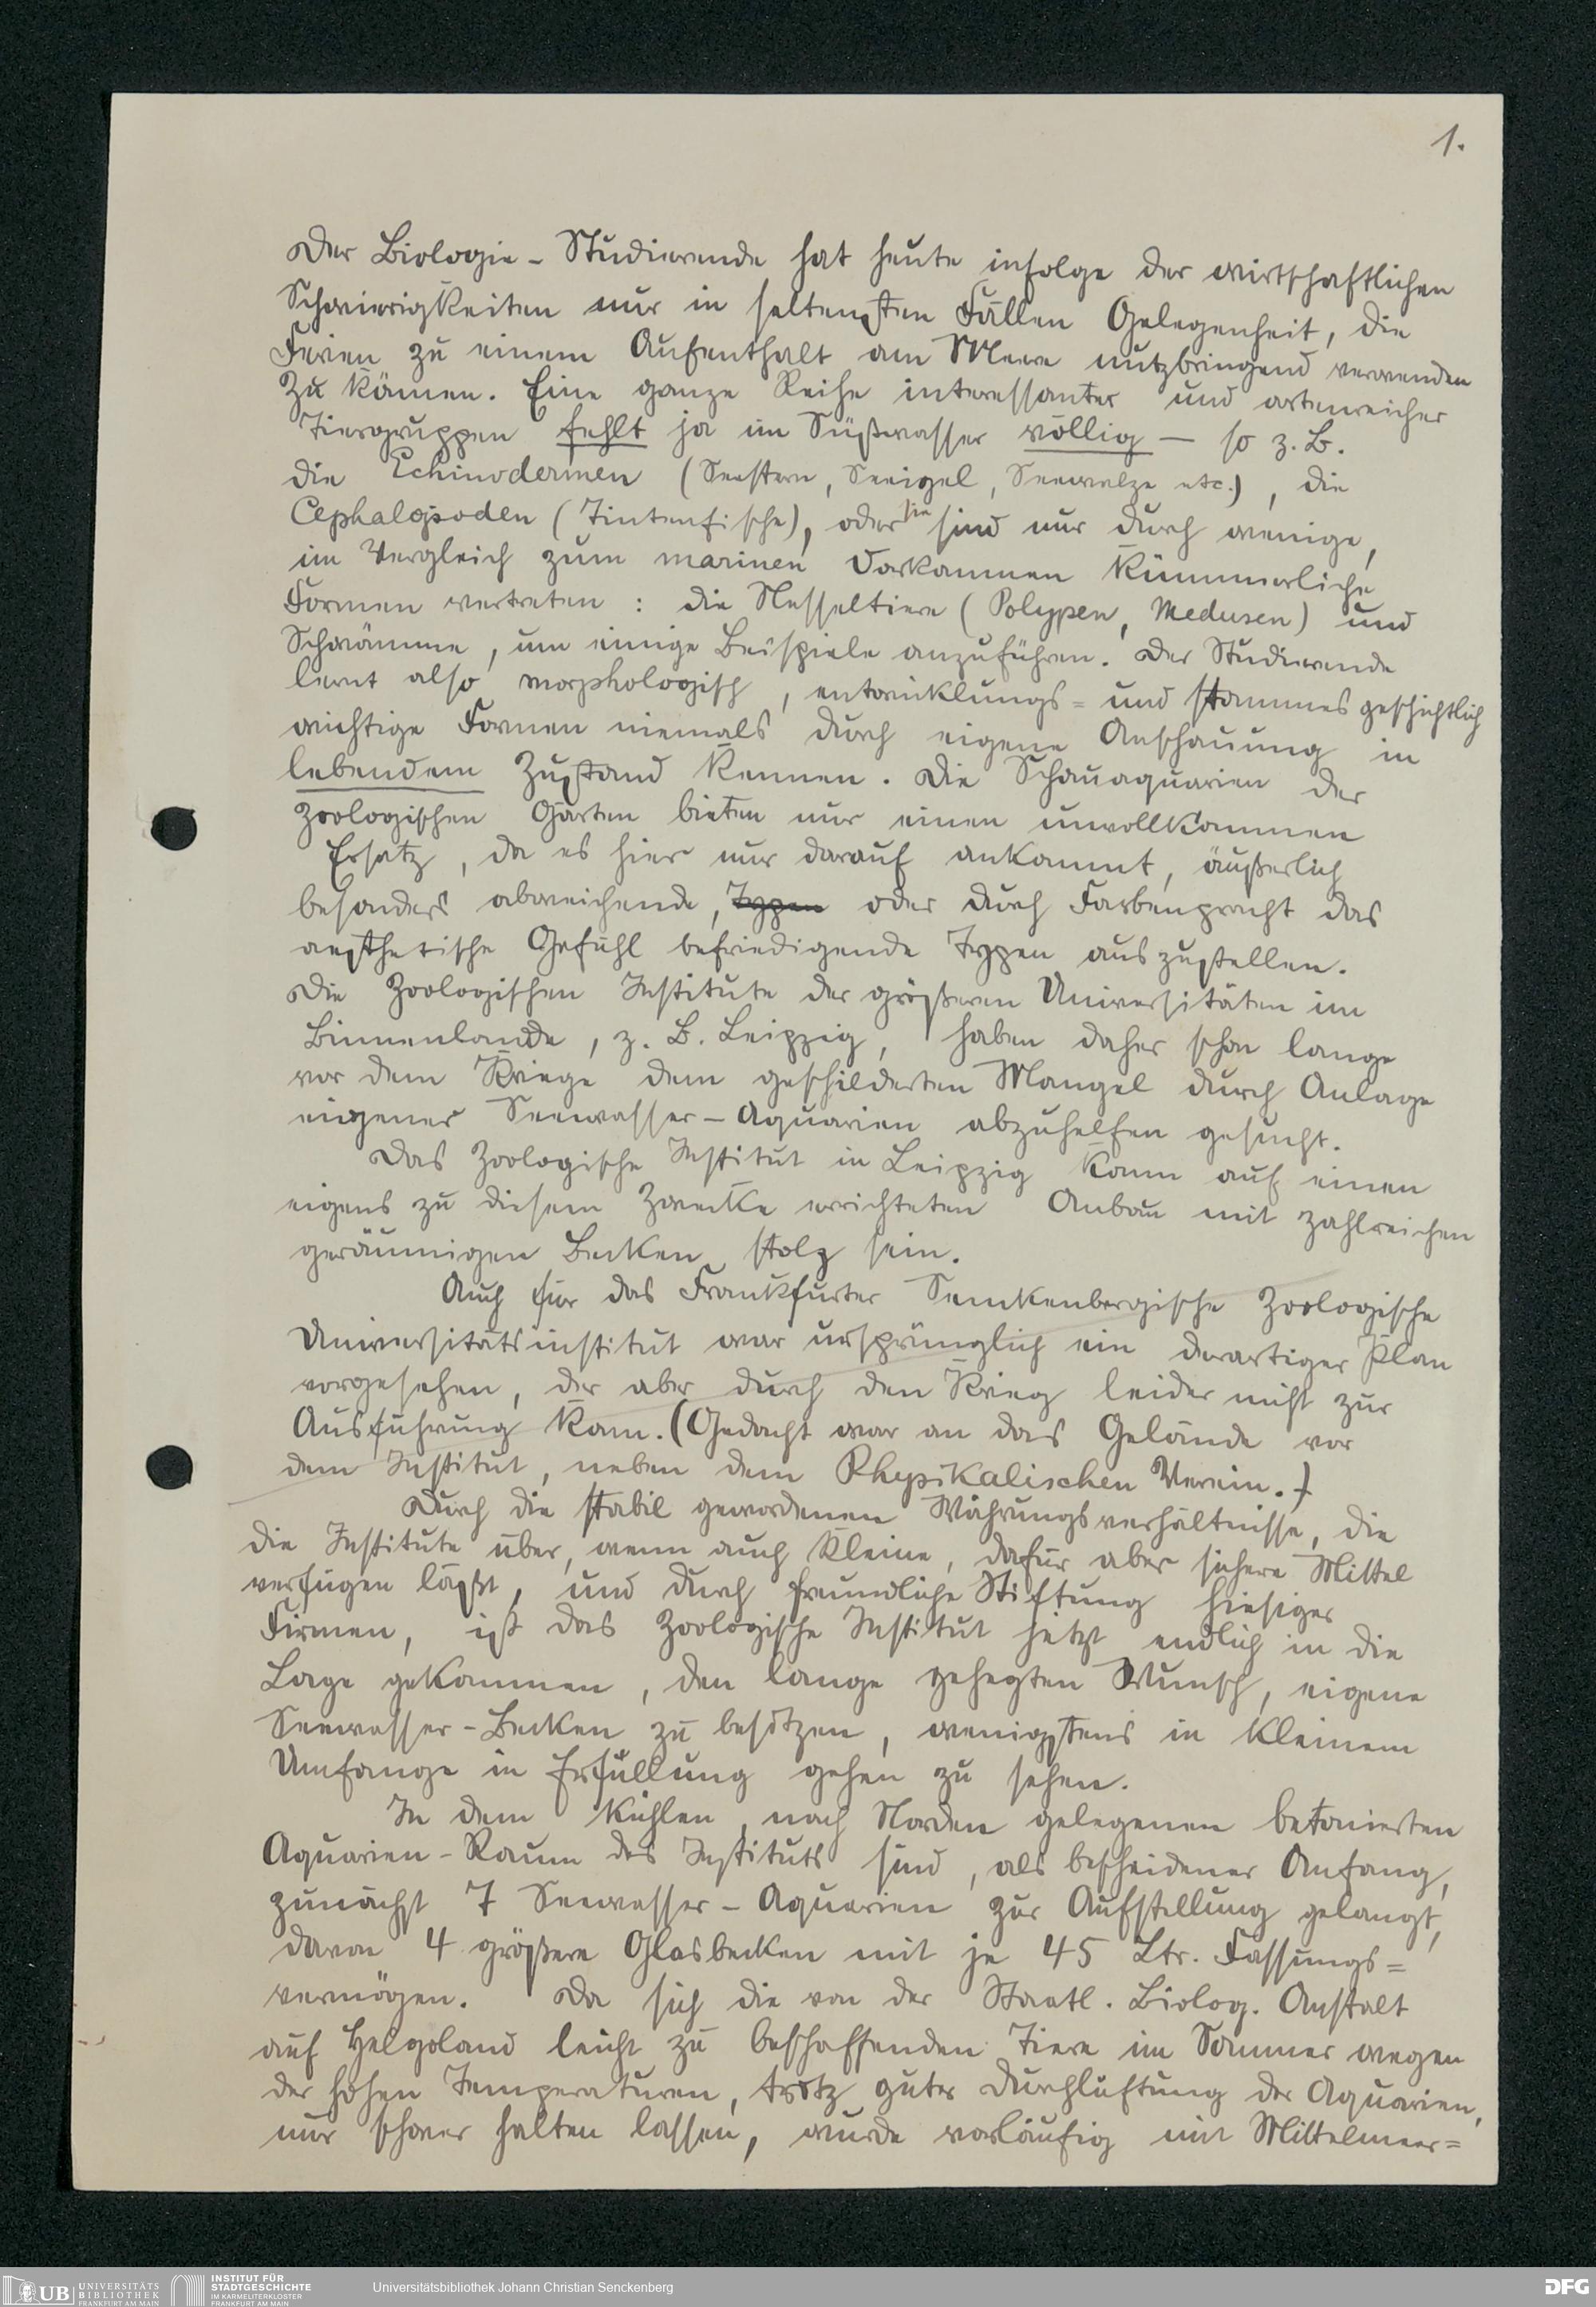 1.
Der Biologie-Studierende hat heute infolge der wirtschaftlichen
Schwierigkeiten nur in seltensten Fällen Gelegenheit, die
Ferien zu einem Aufenthalt am Meere nutzbringend verwenden
zu können. Eine ganze Reihe interessanter und artenreicher
Tiergruppen fehlt ja im Süßwasser völlig – so z. B.
die Echinodermen (Seestern, Seeigel, Seewalze etc.), die
Cephalopoden (Tintenfische), oder sie sind nur durch wenige,
im Vergleich zum marinen Vorkommen kümmerliche
Formen vertreten: die Nesseltiere (Polypen, Medusen) und
Schwämme, um einige Beispiele anzuführen. Der Studierende
lernt also morphologisch, entwicklungs= und stammesgeschichtlich
wichtige Formen niemals durch eigene Anschauung in
lebendem Zustand kennen. Die Schauaquarien der
Zoologischen Gärten bieten nur einen unvollkommen
Ersatz, da es hier nur darauf ankommt, äußerlich
besonders abweichende, Typen oder durch Farbenpracht das
aesthetische Gefühl befriedigende Typen auszustellen.
Die Zoologischen Institute der größeren Universitäten im
Binnenlande, z. B. Leipzig, haben daher schon lange
vor dem Kriege dem geschilderten Mangel durch Anlage
eigener Seewasser-Aquarien abzuhelfen gesucht.
Das Zoologische Institut in Leipzig kann auf einen
eigens zu diesem Zwecke errichteten Anbau mit zahlreichen
geräumigen Becken stolz sein.
Auch für das Frankfurter Senckenbergische Zoologische
Universitätsinstitut war ursprünglich ein derartiger Plan
vorgesehen, der aber durch den Krieg leider nicht zur
Ausführung kam. (Gedacht war an das Gelände vor
dem Institut, neben dem Physikalischen Verein.)
Durch die stabil gewordenen Währungsverhältnisse, die
die Institute über, wenn auch kleine, dafür aber sichere Mittel
verfügen läßt, und durch freundliche Stiftung hiesiger
Firmen, ist das Zoologische Institut jetzt endlich in die
Lage gekommen, den lange gehegten Wunsch, eigene
Seewasser-Becken zu besitzen, wenigstens in kleinem
Umfange in Erfüllung gehen zu sehen.
In dem kühlen, nach Norden gelegenen betonierten
Aquarien-Raum des Instituts sind, als bescheidener Anfang,
zunächst 7 Seewasser-Aquarien zur Aufstellung gelangt,
davon 4 größere Glasbecken mit je 45 Ltr. Fassungs=
vermögen. Da sich die von der Staatl. Biolog. Anstalt
auf Helgoland leicht zu beschaffenden Tiere im Sommer wegen
der hohen Temperaturen, trotz guter Durchlüftung der Aquarien,
nur schwer halten lassen, wurde vorläufig mit Mittelmeer=
UB UNIVERSITÄTS
BIBLIOTHEK
FRANKFURT AM MAIN
INSTITUT FÜR
STADTGESCHICHTE
IM KARMELITERKLOSTER
FRANKFURT AM MAIN
Universitätsbibliothek Johann Christian Senckenberg
DFG